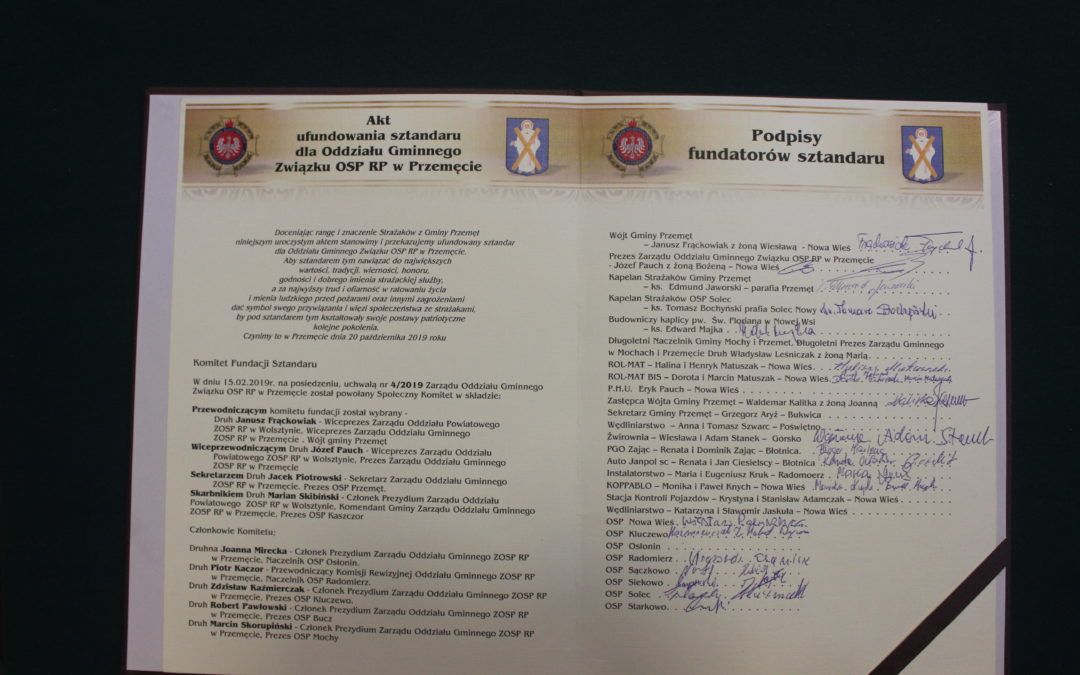 Akt
ufundowania sztandaru
dla Oddziału Gminnego
Związku OSP RP w Przemęcie
Doceniając rangę i znaczenie Strażaków z Gminy Przemęt
niniejszym uroczystym aktem stanowimy i przekazujemy ufundowany sztandar
dla Oddziału Gminnego Związku OSP RP w Przemęcie.
Aby sztandarem tym nawiązać do największych
wartości, tradycji, wierności, honoru,
godności i dobrego imienia strażackiej służby,
a za najwyższy trud i ofiarność w ratowaniu życia
i mienia ludzkiego przed pożarami oraz innymi zagrożeniami
dać symbol swego przywiązania i więzi społeczeństwa ze strażakami,
by pod sztandarem tym kształtowały swoje postawy patriotyczne
kolejne pokolenia.
Czynimy to w Przemęcie dnia 20 października 2019 roku
Komitet Fundacji Sztandaru
W dniu 15.02.2019r. na posiedzeniu, uchwałą nr 4/2019 Zarządu Oddziału Gminnego
Związku OSP RP w Przemęcie został powołany Społeczny Komitet w składzie:
Przewodniczącym komitetu fundacji został wybrany -
Druh Janusz Frąckowiak - Wiceprezes Zarządu Oddziału Powiatowego
ZOSP RP w Wolsztynie, Wiceprezes Zarządu Oddziału Gminnego
ZOSP RP w Przemęcie . Wójt gminy Przemęt
Wiceprzewodniczącym Druh Józef Pauch - Wiceprezes Zarządu Oddziału
Powiatowego ZOSP RP w Wolsztynie, Prezes Zarządu Oddziału Gminnego
ZOSP RP w Przemęcie
Sekretarzem Druh Jacek Piotrowski - Sekretarz Zarządu Oddziału Gminnego
ZOSP RP w Przemęcie. Prezes OSP Przemęt.
Skarbnikiem Druh Marian Skibiński - Członek Prezydium Zarządu Oddziału
Powiatowego ZOSP RP w Wolsztynie, Komendant Gminny Zarządu Oddziału Gminnego
ZOSP RP w Przemęcie, Prezes OSP Kaszczor
Członkowie Komitetu:
Druhna Joanna Mirecka - Członek Prezydium Zarządu Oddziału Gminnego ZOSP RP
w Przemęcie, Naczelnik OSP Osłonin.
Druh Piotr Kaczor - Przewodniczący Komisji Rewizyjnej Oddziału Gminnego ZOSP RP
w Przemęcie, Naczelnik OSP Radomierz.
Druh Zdzisław Kaźmierczak - Członek Prezydium Zarządu Oddziału Gminnego ZOSP RP
w Przemęcie, Prezes OSP Kluczewo.
Druh Robert Pawłowski - Członek Prezydium Zarządu Oddziału Gminnego ZOSP RP
w Przemęcie, Prezes OSP Bucz
Druh Marcin Skorupiński - Członek Prezydium Zarządu Oddziału Gminnego ZOSP RP
w Przemęcie, Prezes OSP Mochy
Podpisy
fundatorów sztandaru
Wójt Gminy Przemęt
– Janusz Frąckowiak z żoną Wiesławą - Nowa Wieś
Prezes Zarządu Oddziału Gminnego Związku OSP RP w Przemęcie
- Józef Pauch z żoną Bożeną – Nowa Wieś
Kapelan Strażaków Gminy Przemęt
– ks. Edmund Jaworski – parafia Przemęt
Kapelan Strażaków OSP Solec
– ks. Tomasz Bochyński prafia Solec Nowy ks. Tomasz Bochyński
Budowniczy kaplicy pw. Św. Floriana w Nowej Wsi
– ks. Edward Majka
Długoletni Naczelnik Gminy Mochy i Przemęt, Długoletni Prezes Zarządu Gminnego
w Mochach i Przemęcie Druh Władysław Leśniczak z żoną Marią
ROL-MAT – Halina i Henryk Matuszak – Nowa Wieś
ROL-MAT BIS – Dorota i Marcin Matuszak – Nowa Wieś
P.H.U. Eryk Pauch – Nowa Wieś
Zastępca Wójta Gminy Przemęt – Waldemar Kalitka z żoną Joanną
Sekretarz Gminy Przemęt – Grzegorz Aryż – Bukwica
Wędliniarstwo – Anna i Tomasz Szwarc – Poświętno
Żwirownia – Wiesława i Adam Stanek – Górsko
PGO Zając – Renata i Dominik Zając – Błotnica
Auto Janpol sc – Renata i Jan Ciesielscy – Błotnica
Instalatorstwo – Maria i Eugeniusz Kruk – Radomoerz
KOPPABLO – Monika i Paweł Knych – Nowa Wieś
Stacja Kontroli Pojazdów – Krystyna i Stanisław Adamczak – Nowa Wieś
Wędliniarstwo – Katarzyna i Sławomir Jaskuła – Nowa Wieś
OSP Nowa Wieś
OSP Kluczewo
OSP Osłonin
OSP Radomierz
OSP Sączkowo
OSP Siekowo
OSP Solec
OSP Starkowo